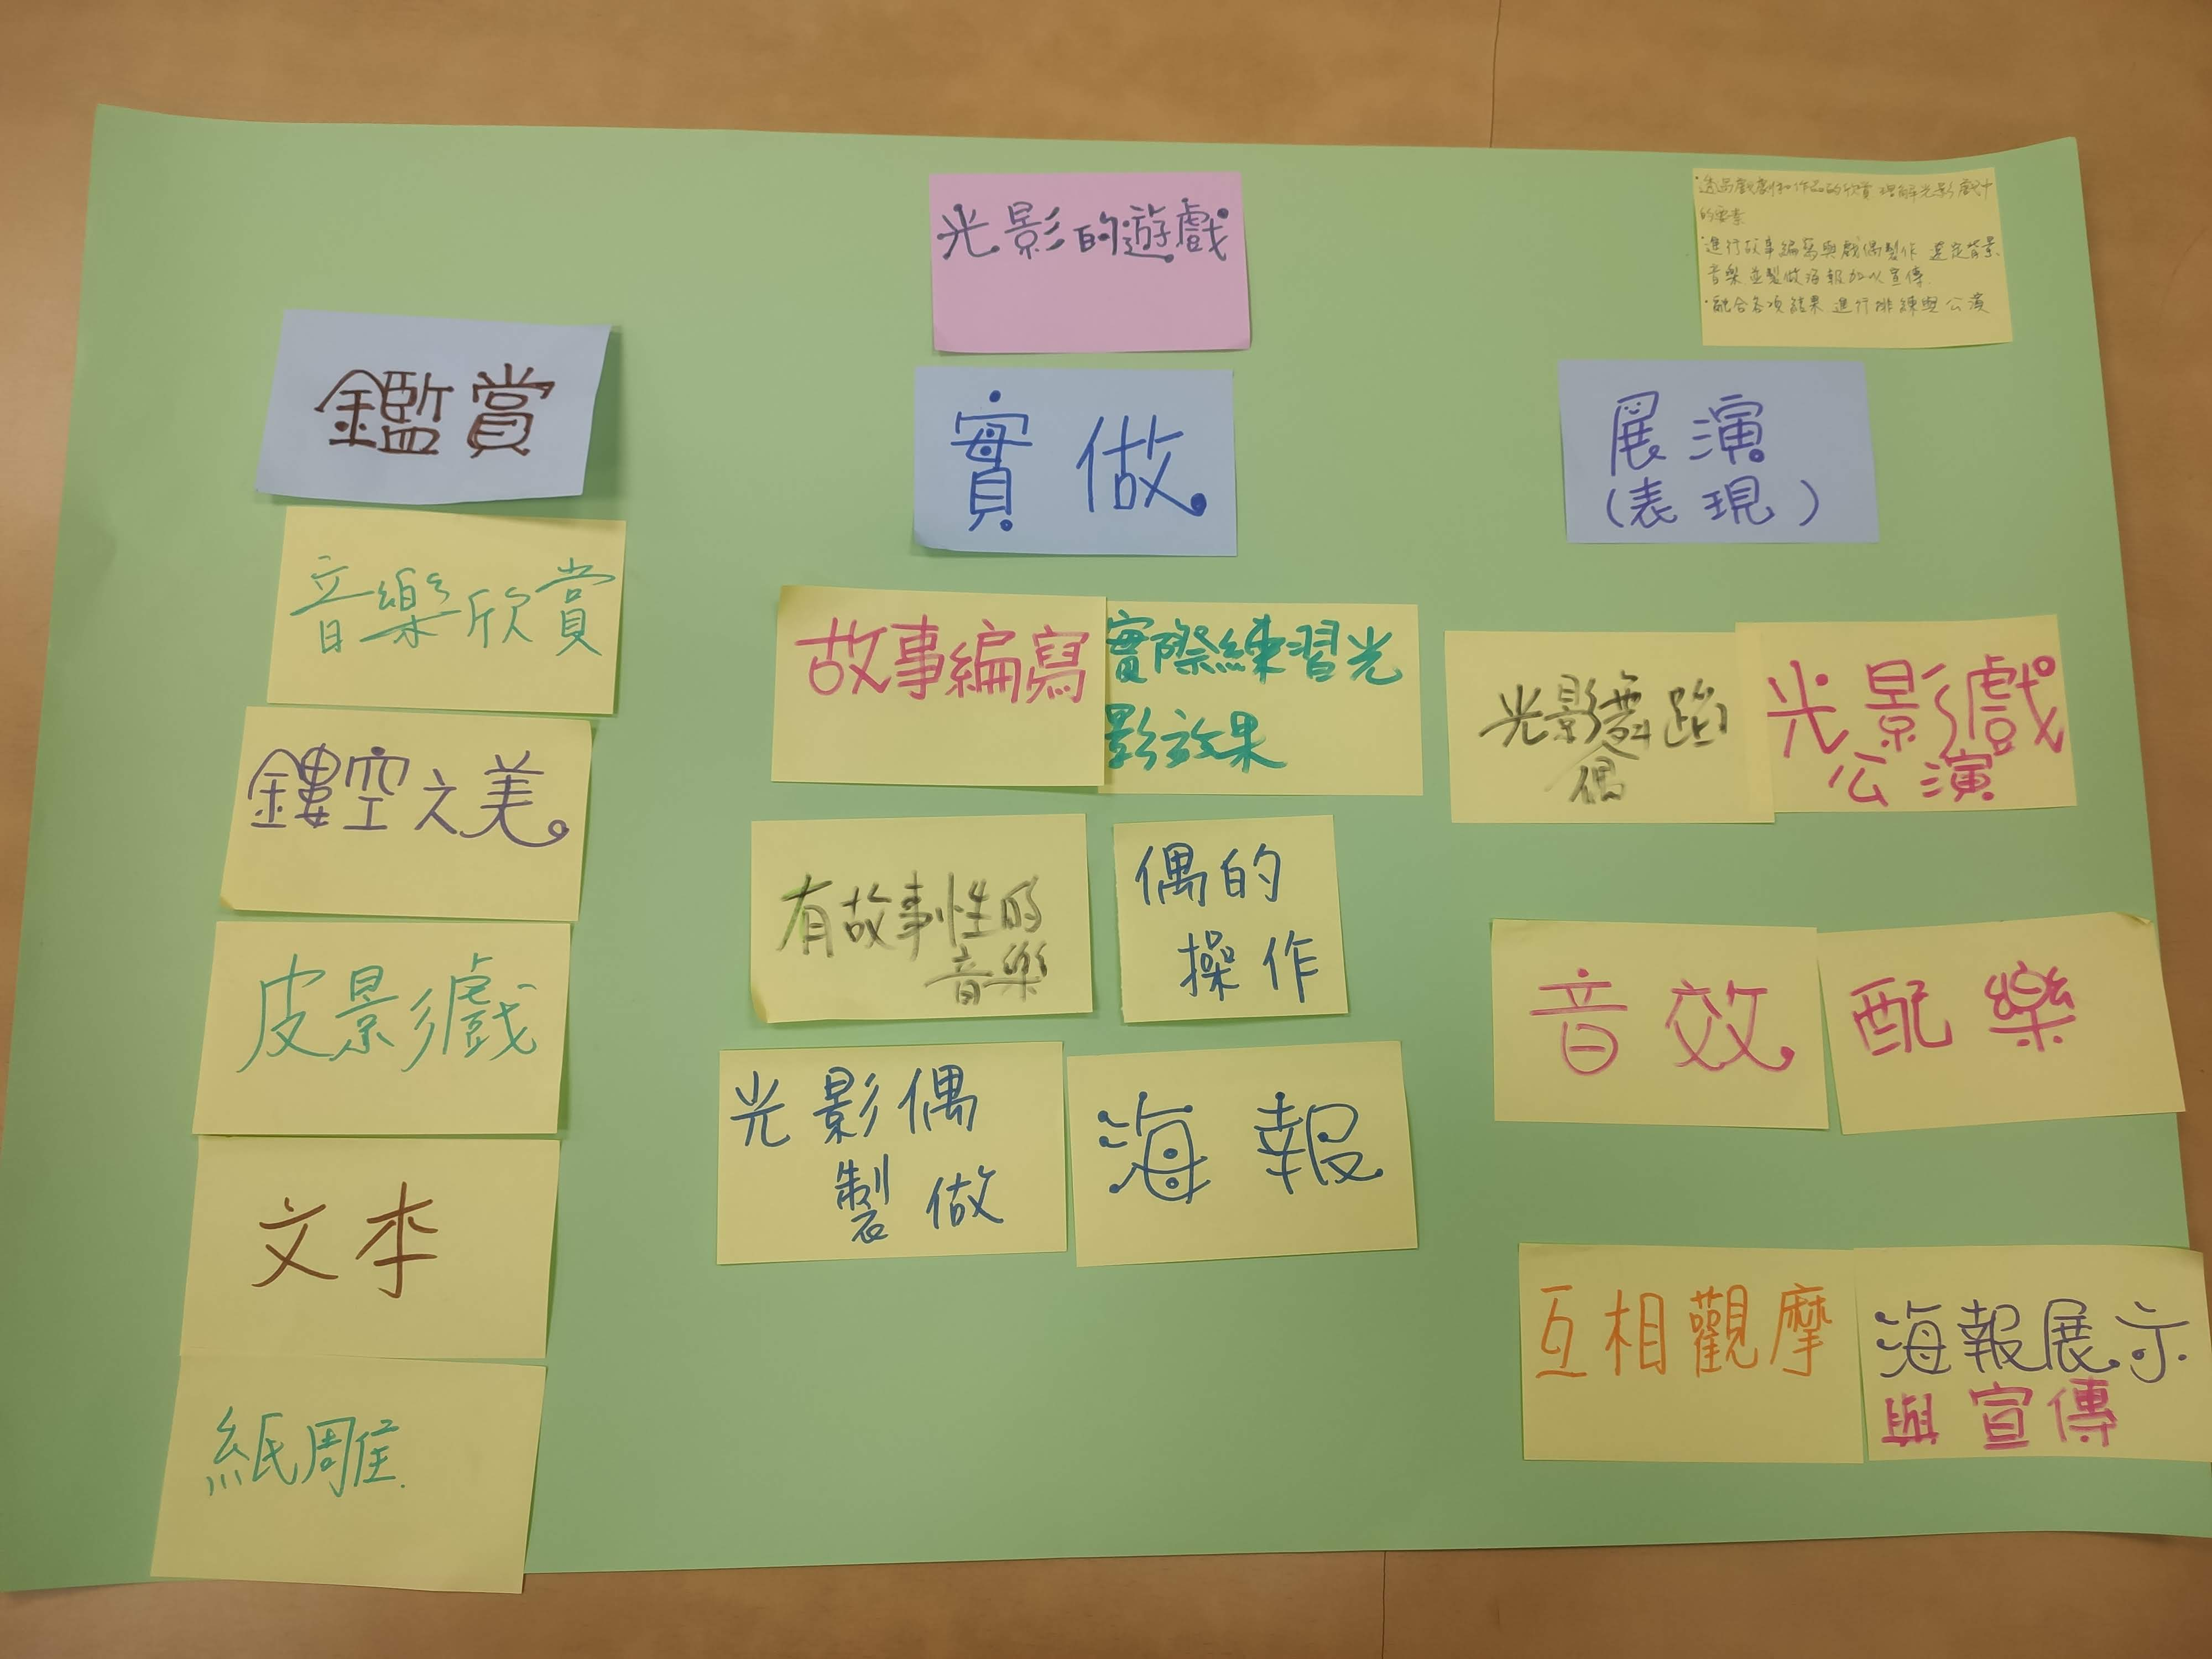 光影的遊戲
・透過戲劇和作品的欣賞 理解光影戲中
的要素
・進行故事編寫與戲偶製作 選定背景
音樂 並製做海報加以宣傳
・融合各項結果 進行排練與公演
鑑賞
音樂欣賞
鏤空之美
皮影戲
文本
紙雕
實做
故事編寫
實際練習光
影效果
有故事性的
音樂
偶的
操作
光影偶
製做
海報
展演
(表現)
光影舞蹈
偶
光影戲
公演
音效
配樂
互相觀摩
海報展示
與宣傳